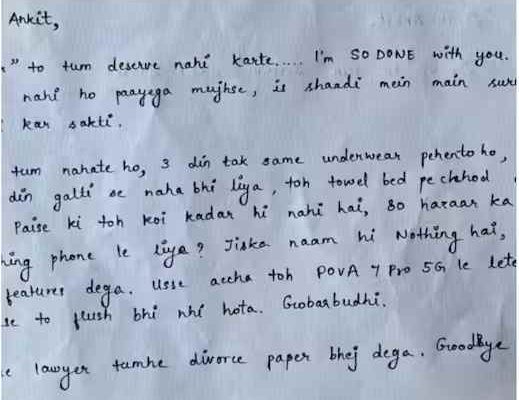 Ankit,
" to tum deserve nahi karte..... I'm SO DONE with you.
nahi ho paayega mujhse, is shaadi mein main
kar sakti.
tum nahate ho, 3 din tak same underwear pehente ho,
din galti se naha bhi liya, toh towel bed pe chhod
Paise ki toh koi kadar hi nahi hai, 80 hazaar ka
phone le liya? Jiska naam hi Nothing hai,
features dega. Usse accha toh POVA 7 Pro 5G le lete
to flush bhi nhi hota. Gobarbudhi.
lawyer tumhe divorce paper bhej dega. Goodbye